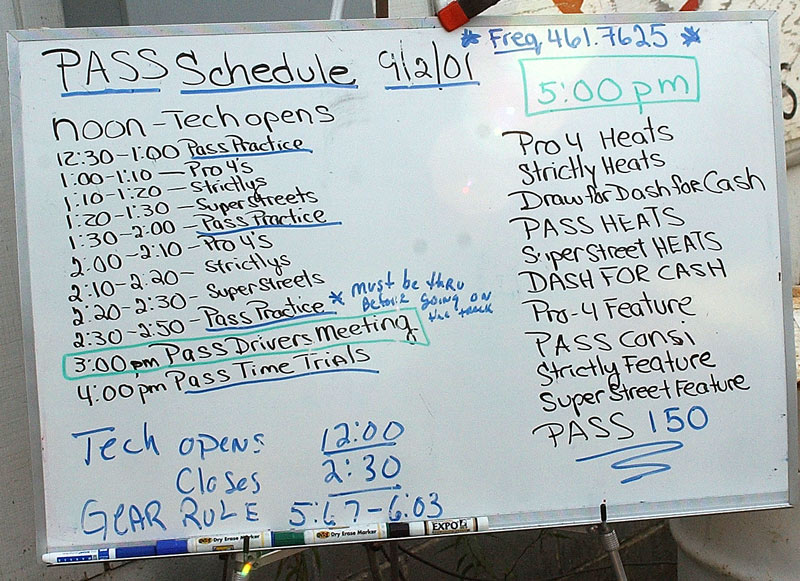 PASS Schedule 9/2/01
* Freq 461.7625 *
noon - Tech opens
12:30-1:00 Pass Practice
1:00-1:10 - Pro 4's
1:10-1:20 - Strictlys
1:20-1:30 - SuperStreets
1:30-2:00 - Pass Practice
2:00-2:10 - Pro 4's
2:10-2:20 - Strictlys
2:20-2:30 - SuperStreets
2:30-2:50 - Pass Practice * must be thru
Before going on
the track
3:00 pm Pass Drivers Meeting
4:00 pm Pass Time Trials
Tech opens 12:00
Closes 2:30
GEAR RULE 5:67-6:03
5:00 pm
Pro 4 Heats
Strictly Heats
Draw for Dash for Cash
PASS HEATS
SuperStreet HEATS
DASH FOR CASH
Pro-4 Feature
PASS CONSI
Strictly Feature
Super Street Feature
PASS 150
Dry Erase Marker
Dry Erase Marker
EXPO